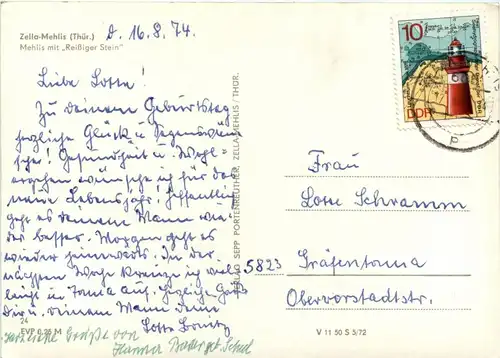 Zella-Mehlis (Thür.)
Mehlis mit „Reißiger Stein"
d. 16.8.74.
Liebe Lotte!
Zu deinem Geburtstag
herzliche Glück u. Segenswün-
sche! Gesundheit u. Wohl-
ergehen wünsche ich für das
neue Lebensjahr! Hoffentlich
geht es deinem Mann wie-
der besser. Morgen geht es
wieder heimwärts. In der
nächsten Woche kreuze ich viel-
leicht in Tonna auf. Herzliche Grüße
Dir u. deinem Mann deine
Lotte
Herzliche Grüße von
Hanna
24
EVP 0,25 M
PHOTO SEPP PORTENREUTHER, ZELLA-MEHLIS / THÜR.
V 11 50 S 5/72
10
DDR
Frau
Lotte Schramm
5823 Gräfentonna
Obervorstadtstr.